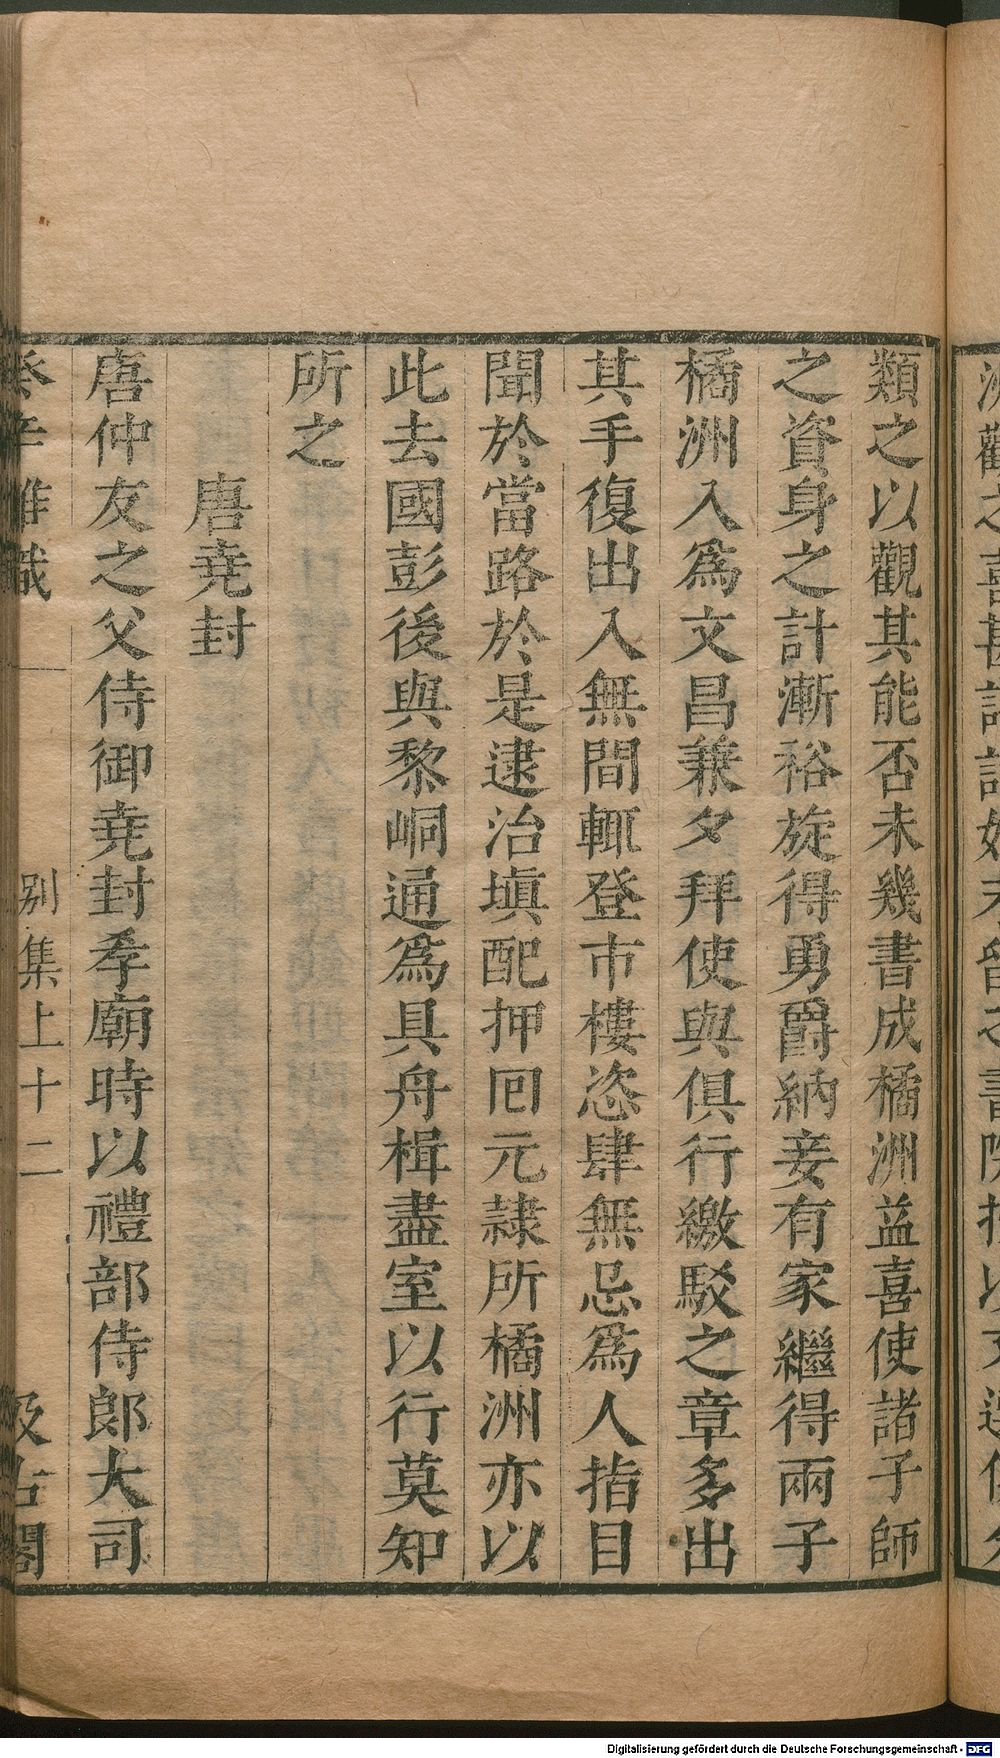 類之以觀其能否未幾書成橘洲益喜使諸子師
之資身之計漸裕旋得勇爵納妾有家繼得兩子
橘洲入爲文昌兼夕拜使與俱行繳駁之章多出
其手復出入無間輒登市樓恣肆無忌爲人指目
聞於當路於是逮治塡配押囘元隷所橘洲亦以
此去國彭後與黎峒通爲具舟楫盡室以行莫知
所之
唐堯封
唐仲友之父侍御堯封孝廟時以禮部侍郎大司
癸辛雜識 別集上十二 汲古閣
Digitalisierung gefördert durch die Deutsche Forschungsgemeinschaft - DFG